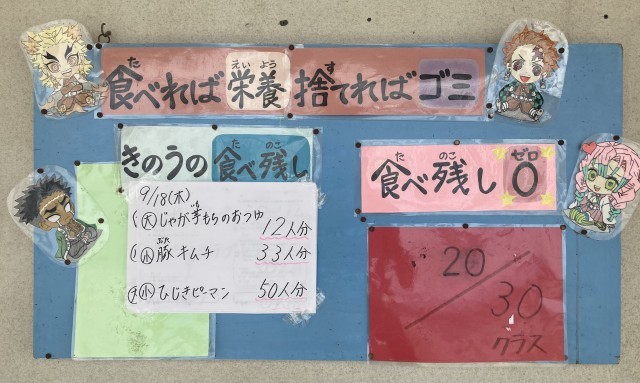 食べれば栄養 捨てればゴミ
きのうの食べ残し
9/18(木)
(大)じゃが芋もちのおつゆ 12人分
(小)豚キムチ 33人分
(小)ひじきピーマン 50人分
食べ残し0
20/30
クラス